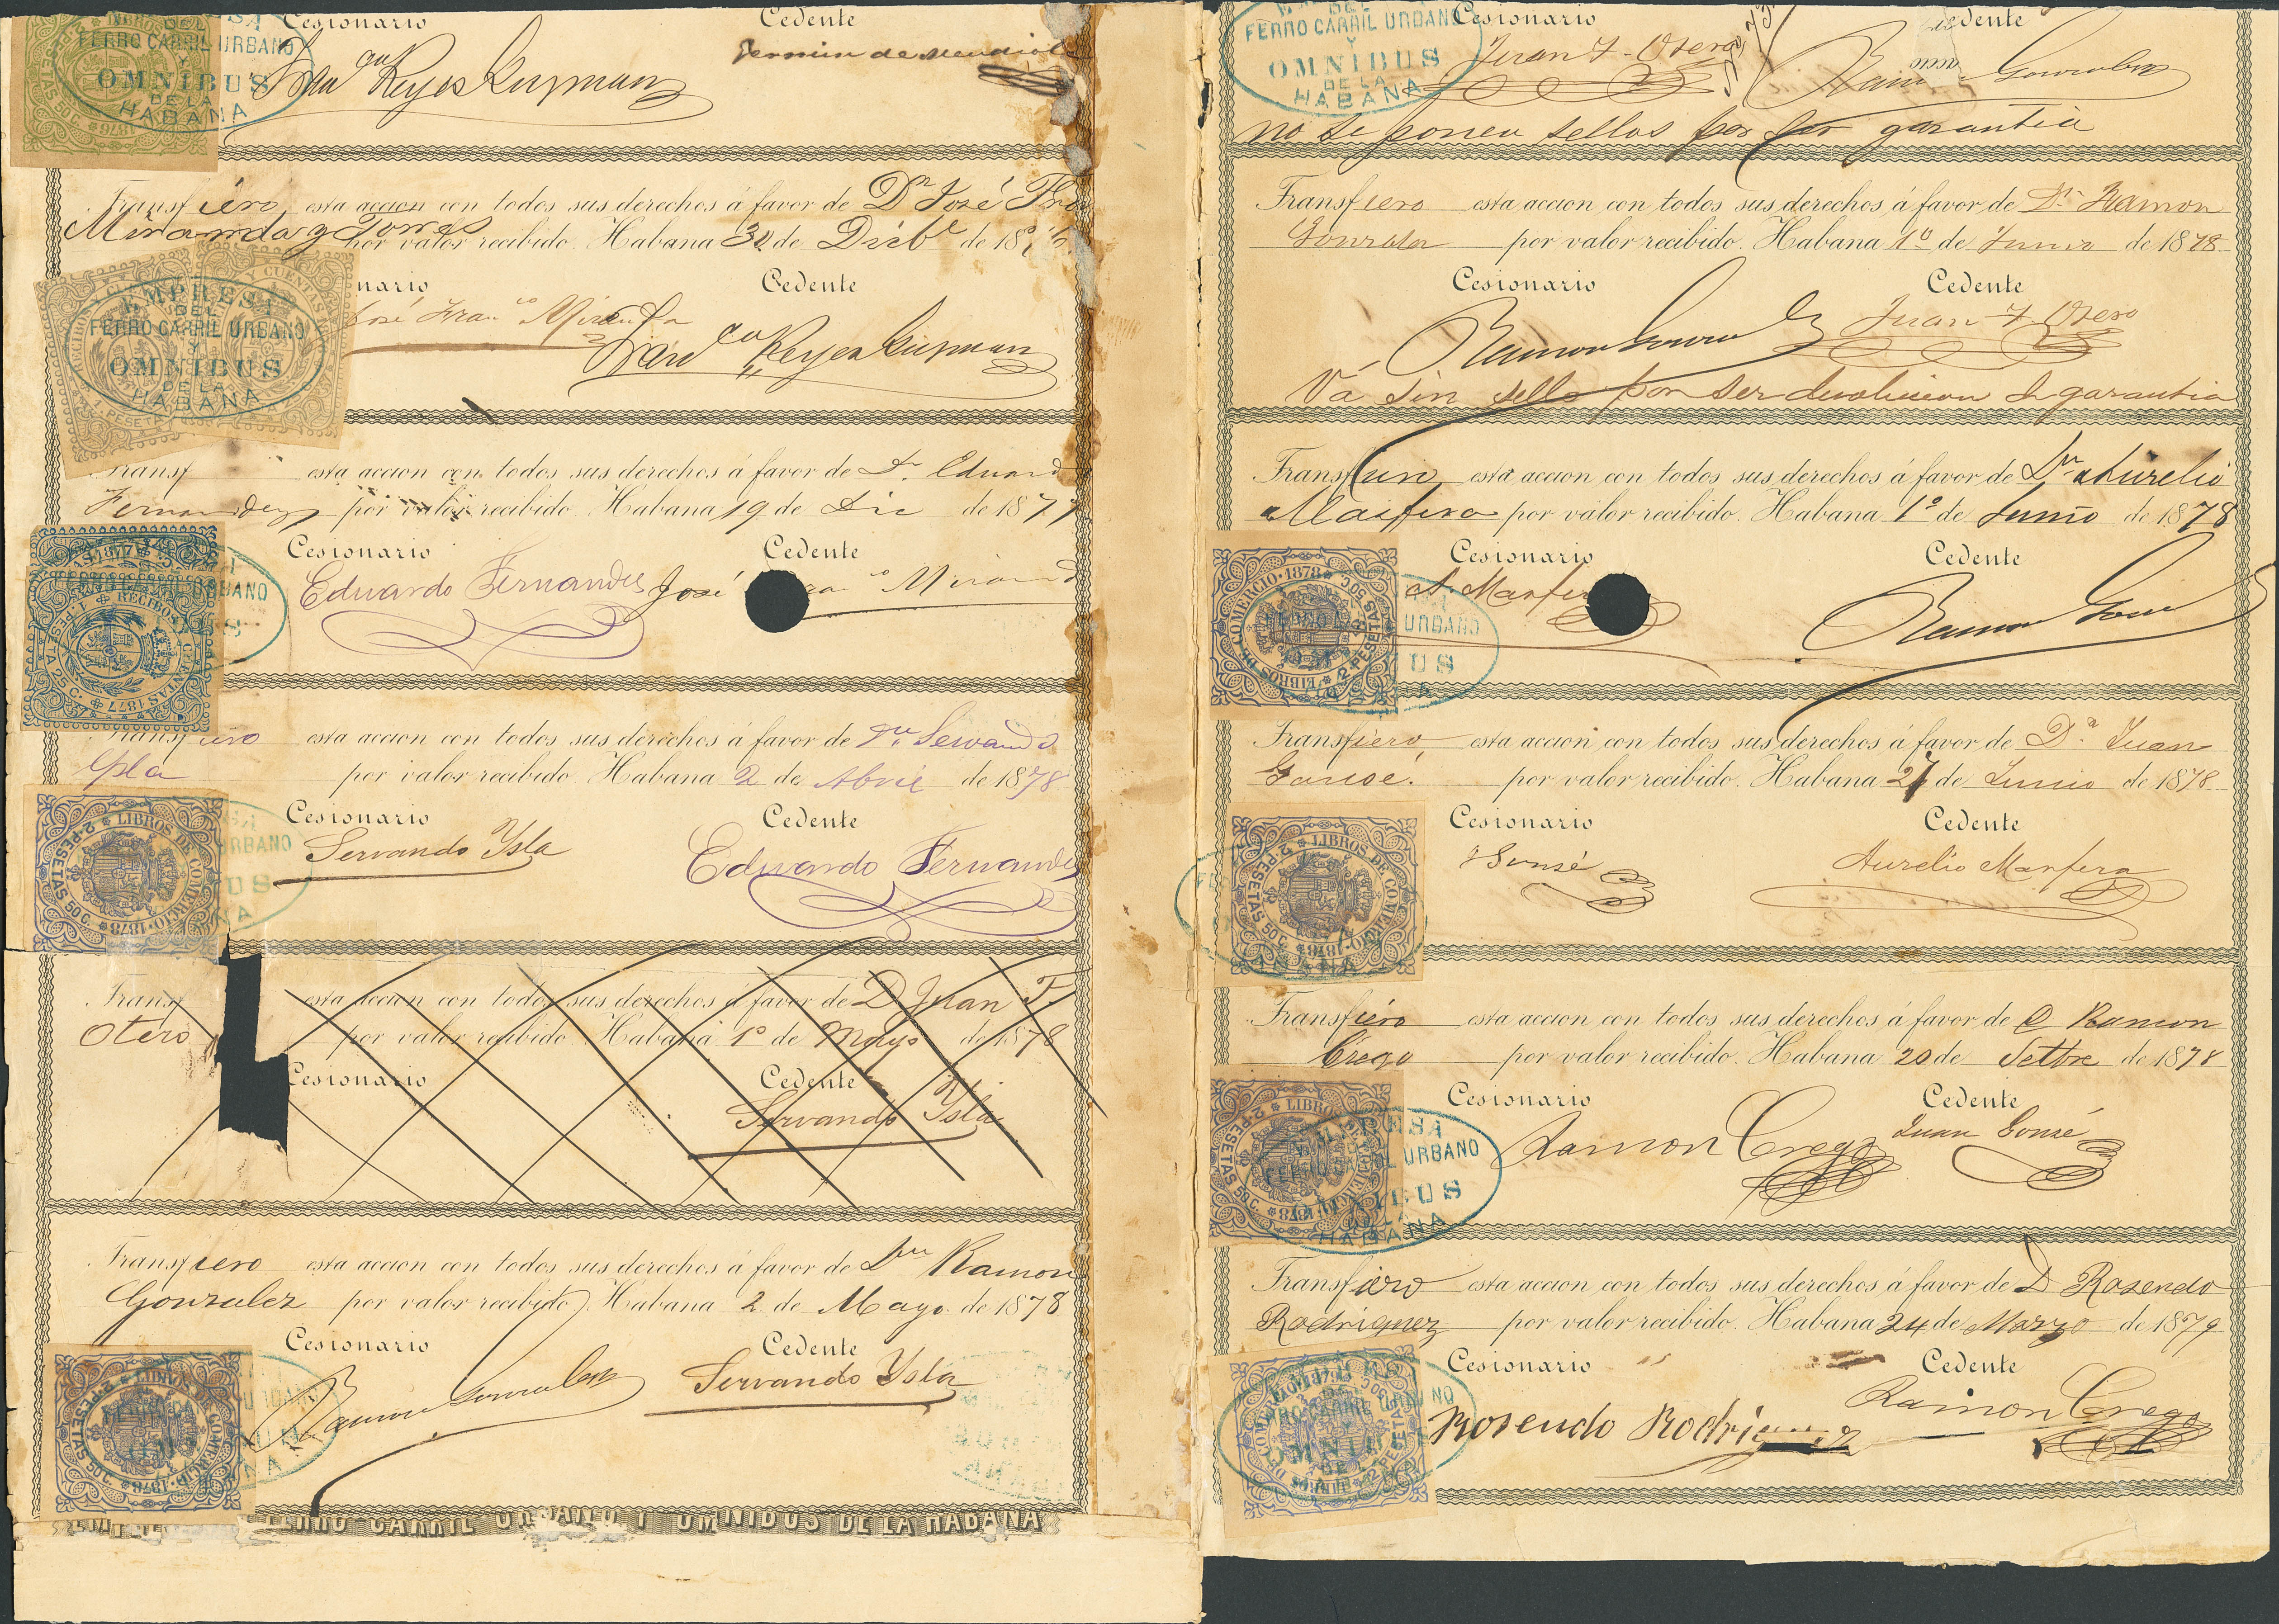 FERRO CARRIL URBANO
Y
OMNIBUS
DE LA
HABANA
Cesionario Cedente
Reyes Guzman
PESETAS 50 C. 1876
Transfiero esta accion con todos sus derechos á favor de Dn José Franco
Miranda y Torres por valor recibido. Habana 30 de Dicbe de 1876
EMPRESA
DEL
FERRO CARRIL URBANO
Y
OMNIBUS
DE LA
HABANA
Cedente
José Franco Miranda
Reyes Guzman
Transf esta accion con todos sus derechos á favor de Dn Eduardo
Fernandez por valor recibido. Habana 19 de Dic de 1877
Cesionario Cedente
Eduardo Fernandez José Miranda
1 PESETA 25 C. RECIBOS Y CUENTAS 1877
Transfiero esta accion con todos sus derechos á favor de Dn Servando
Ysla por valor recibido. Habana 2 de Abril de 1878
Cesionario Cedente
Servando Ysla Eduardo Fernandez
2 PESETAS 50 C. LIBROS DE COMERCIO 1878
Transf esta accion con todos sus derechos á favor de D Juan F.
Otero por valor recibido. Habana 1º de Mayo de 1878
Cesionario Cedente
Servando Ysla
Transfiero esta accion con todos sus derechos á favor de Dn Ramon
Gonzalez por valor recibido. Habana 2 de Mayo de 1878
Cesionario Cedente
Ramon Gonzalez Servando Ysla
2 PESETAS 50 C. LIBROS DE COMERCIO 1878
FERRO CARRIL URBANO Y OMNIBUS DE LA HABANA
DEL
FERRO CARRIL URBANO
Y
OMNIBUS
DE LA
HABANA
Cesionario Cedente
Juan F. Otero Ramon Gonzalez
no se ponen sellos por ser garantia
Transfiero esta accion con todos sus derechos á favor de Dn Ramon
Gonzalez por valor recibido. Habana 1º de Junio de 1878
Cesionario Cedente
Ramon Gonzalez Juan F. Otero
Va sin sello por ser devolucion de garantia
Transfiero esta accion con todos sus derechos á favor de Dn Aurelio
Maifera por valor recibido. Habana 1º de Junio de 1878
Cesionario Cedente
A. Ramon
LIBROS DE COMERCIO 1878 2 PESETAS 50 C.
Transfiero esta accion con todos sus derechos á favor de Dn Juan
por valor recibido. Habana 27 de Junio de 1878
Cesionario Cedente
Aurelio Marfera
2 PESETAS 50 C. LIBROS DE COMERCIO 1878
Transfiero esta accion con todos sus derechos á favor de D Ramon
Crego por valor recibido. Habana 20 de Settre de 1878
Cesionario Cedente
Ramon Crego Juan
2 PESETAS 50 C. LIBROS DE COMERCIO 1878
EMPRESA
URBANO
HABANA
Transfiero esta accion con todos sus derechos á favor de D Rosendo
Rodriguez por valor recibido. Habana 24 de Marzo de 1879
Cesionario Cedente
Rosendo Rodriguez Ramon Crego